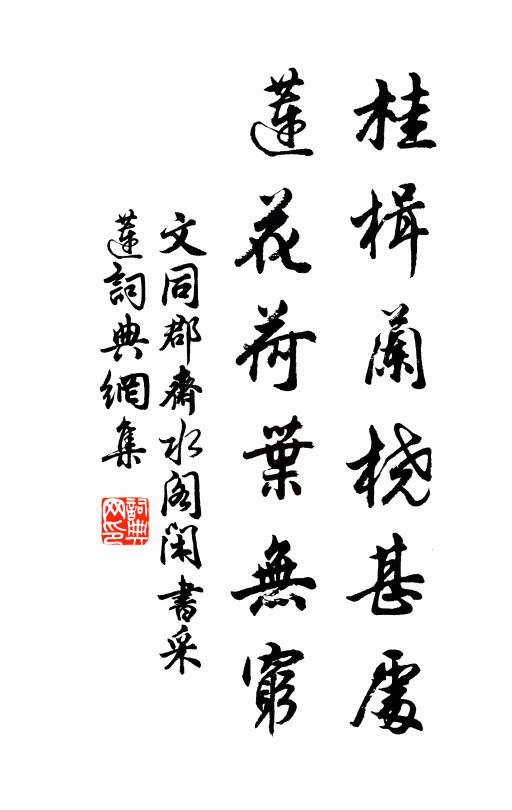 桂楫蘭橈甚處
蓮花荷葉無窮
文同郡齋水閣閑書采
蓮詞典網集
詞典
网印